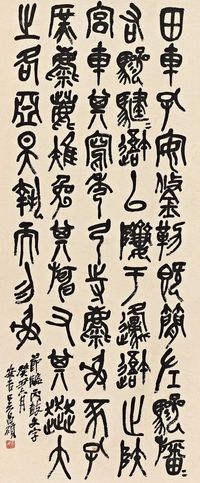 田車孔安鋚勒既簡左驂旛
右驂騝避以隮于邍避止陕
宮車其寫秀弓寺射麋豕孔
庶麀鹿雉兔其趩又其奔大
出各亞昊執而勿射
節臨丙鼓文字
癸丑月
安吉吳昌碩